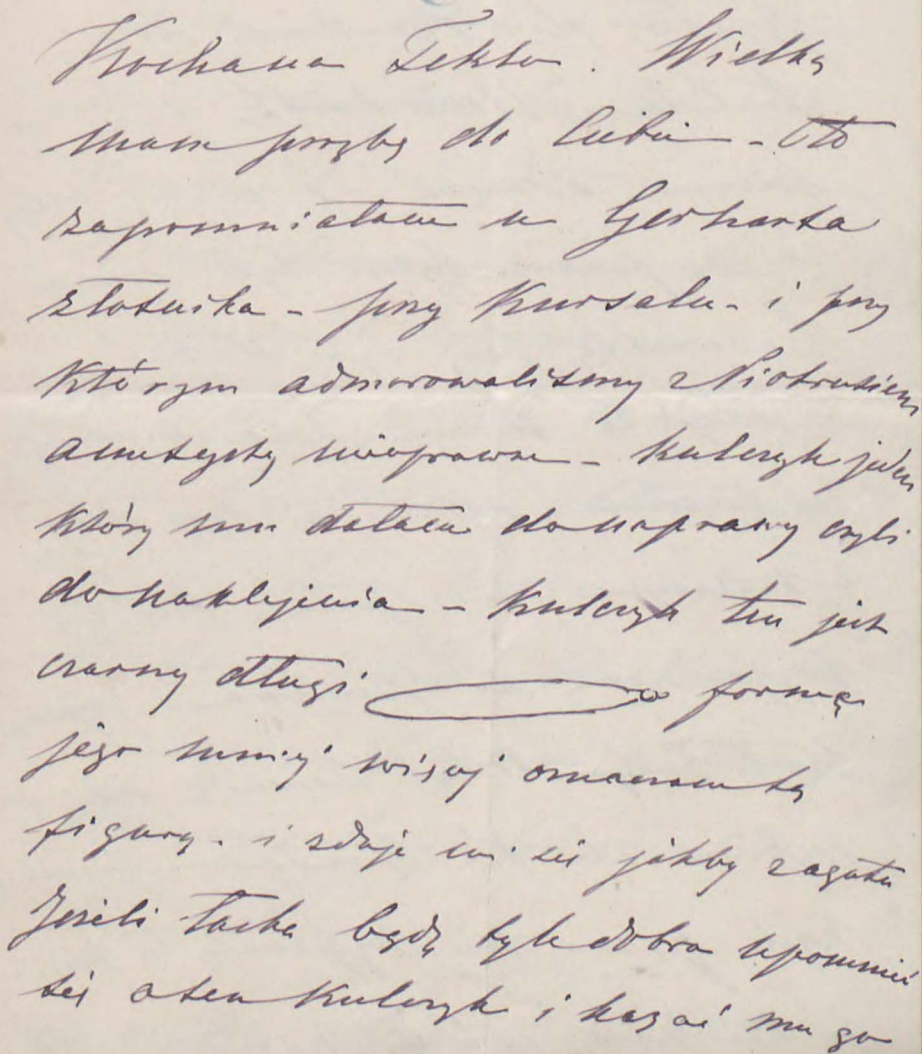 Kochana Teklo. Wielką
mam prozbę do Ciebie - Oto
zapomniałam u Gerharta
złotnika - przy Kursalu - i przy
którym admirowaliśmy z Piotrusiem
ametysty nieoprawne - kulczyk jeden
który mu dałam do naprawy czyli
do naklejenia - Kulczyk ten jest
czarny długi formę
jego mniej więcej oznaczam tą
figurą - i zdaje mi się jakby z agatu
Jeżeli łaska bądź tyle dobra upomnieć
się o ten Kulczyk i kazać mu go